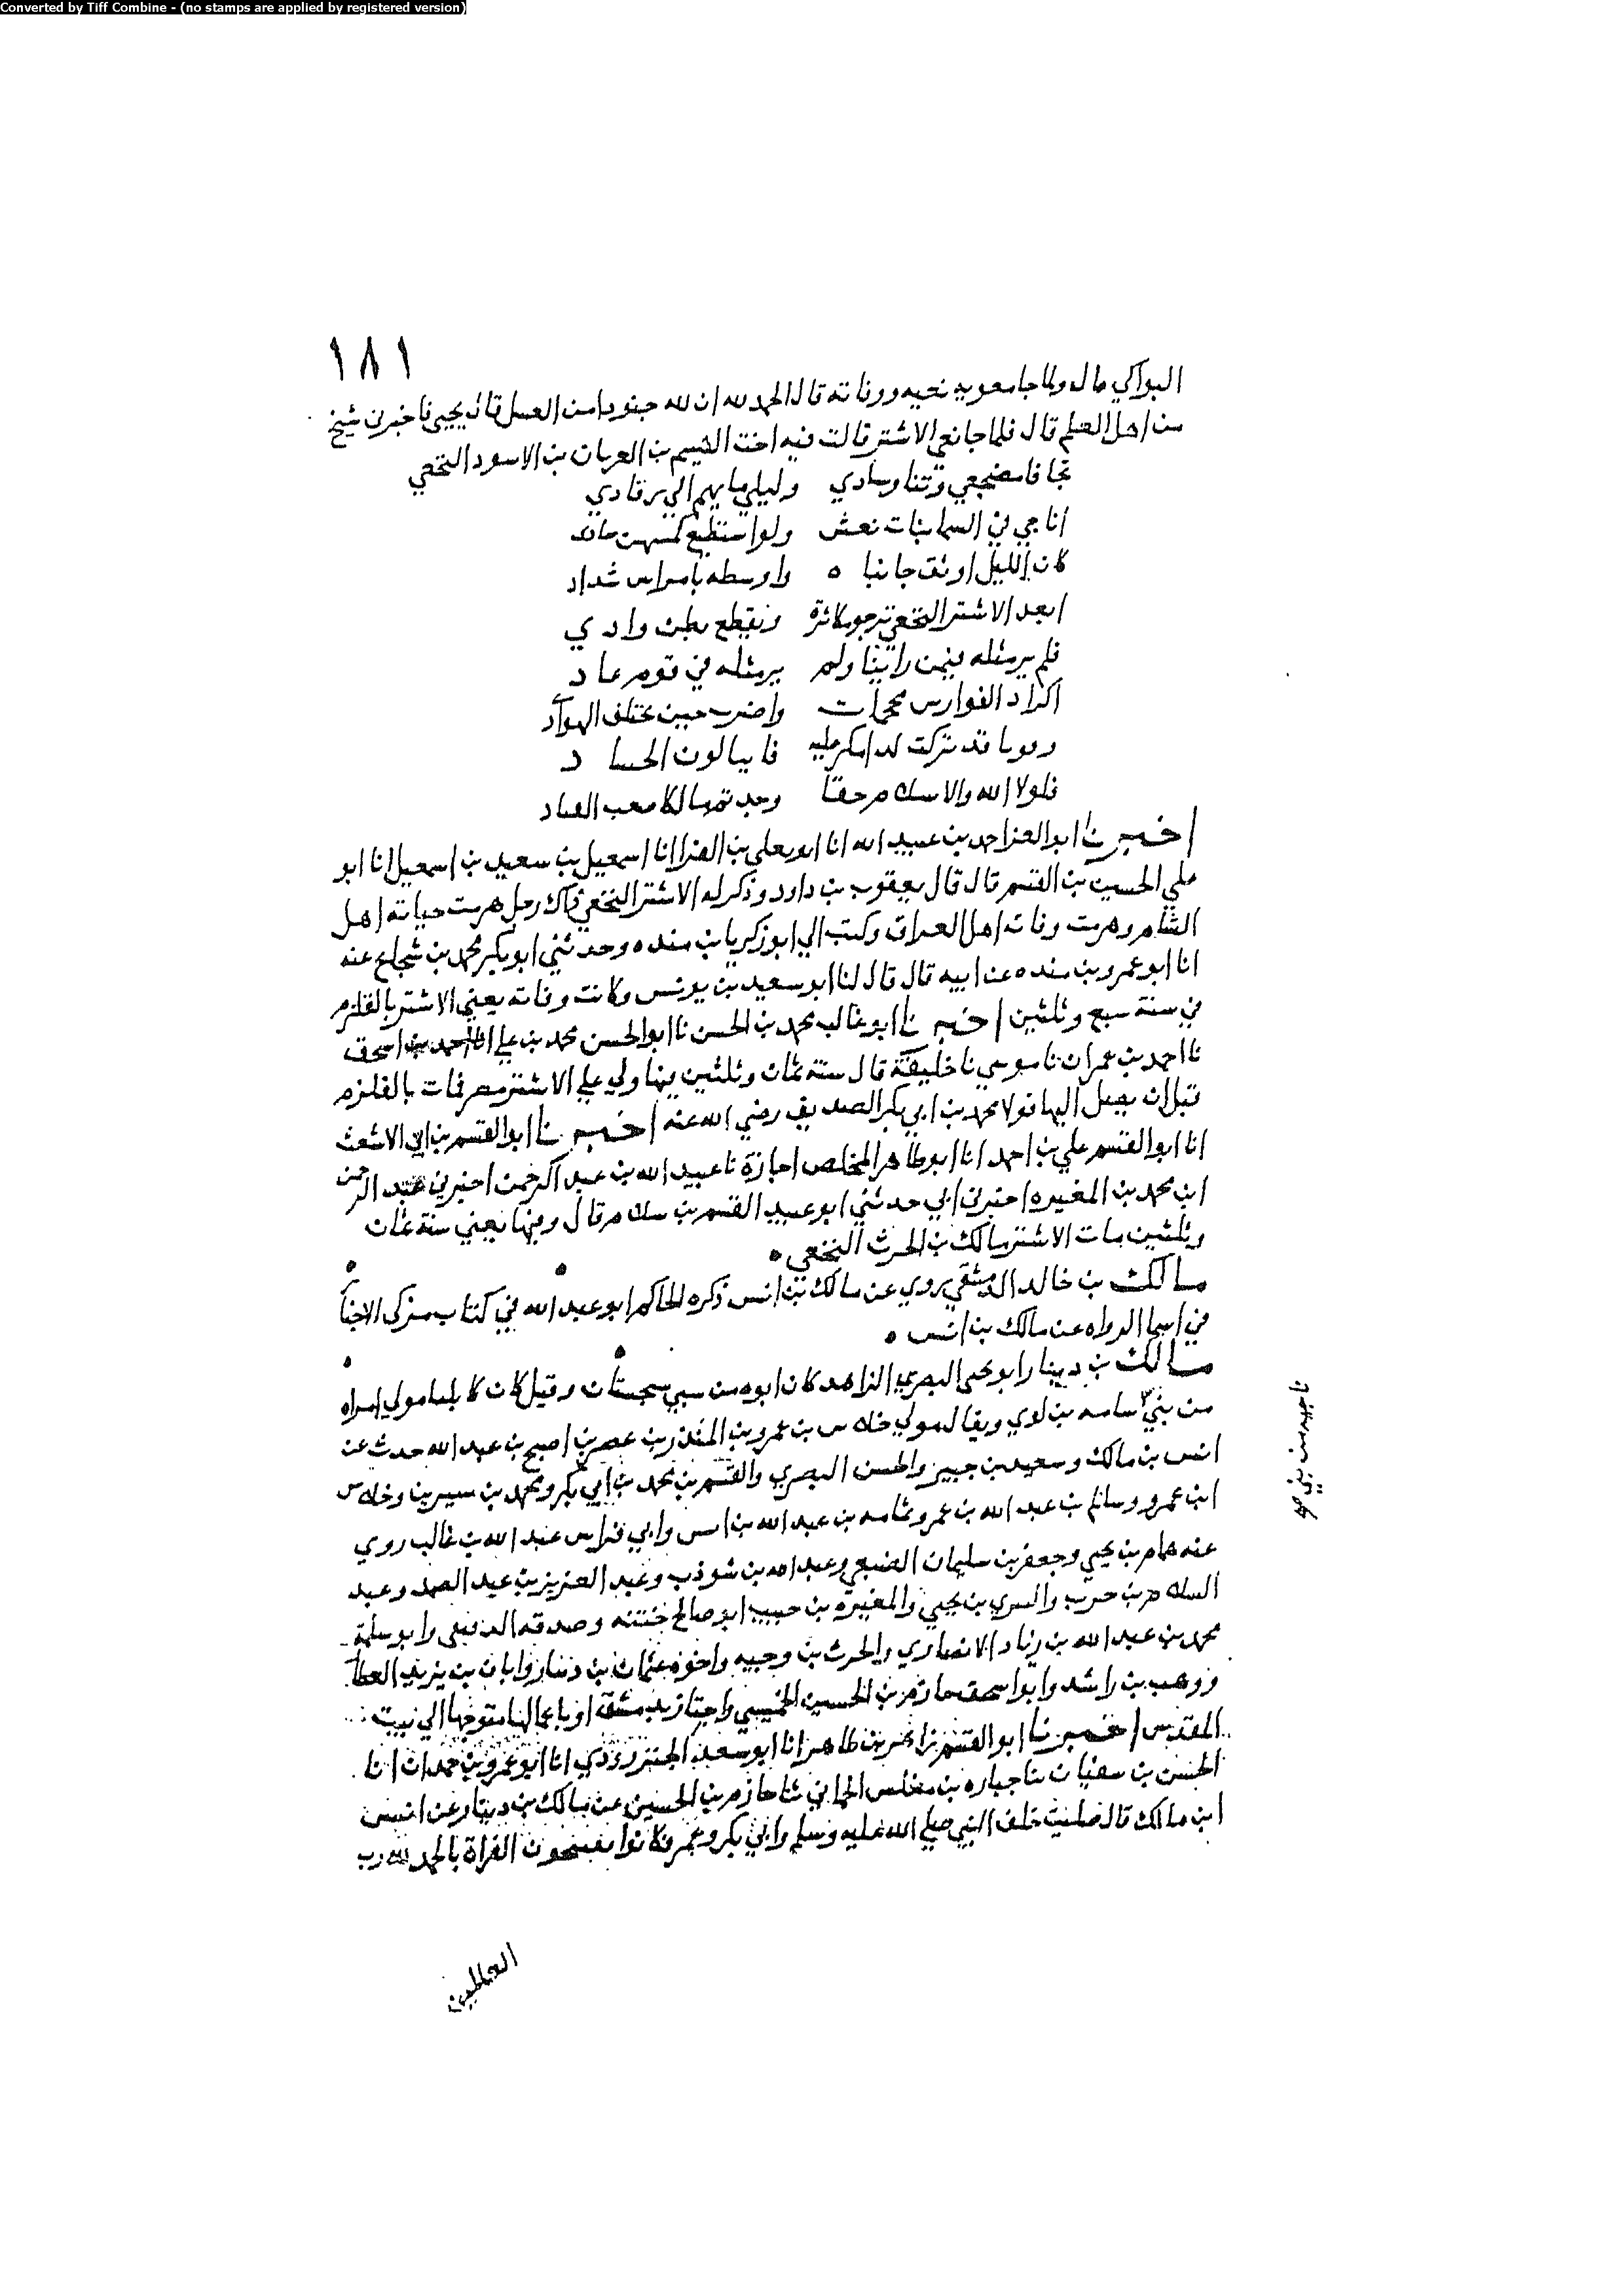 Converted by Tiff Combine - (no stamps are applied by registered version)
١٨١
البواكي قال ولما جا معويه نعيه ووفاته قال الحمد لله ان لله جنودا من العسل قال يحيى فاخبرني شيخ
من اهل العلم قال فلما جا نعي الاشتر قالت فيه اخت الهيثم بن العريان بن الاسود النخعي
تجافا مضجعي ونبا وسادي وليلي ما يهم الى برقادي
اناجي في السما بنات نعش ولو استطيع كنت لهن
كان الليل اوثق جانبا ه واوسطه بامراس شداد
ابعد الاشتر النخعي نرجو مكاثرة ونقطع بطن وادي
فلم ير مثله فيمن راينا ولم ير مثله في قوم عاد
اكراد الفوارس محجمات واضرب حين تختلف الهواد
وقوما قد تركت لدا مكر عليه فا يبالون الحسا د
فلولا الله والاسلام حقا وجدتم مالكا صعب القياد
اخبرنا ابو العز احمد بن عبيد الله انا ابو يعلى بن الفرا انا اسمعيل بن سعيد بن اسمعيل انا ابو
علي الحسين بن القسم قال قال يعقوب بن داود وذكر له الاشتر النخعي ذاك رجل هزمت حياته اهل
الشام وهزمت وفاته اهل العراق وكتب الي ابو زكريا بن منده وحدثني ابو بكر محمد بن شجاع عنه
انا ابو عمرو بن منده عن ابيه قال قال لنا ابو سعيد بن يونس وكانت وفاته يعني الاشتر بالقلزم
في سنة سبع وثلثين اخبرنا ابو غالب محمد بن الحسن نا ابو الحسن محمد بن علي انا احمد بن اسحق
نا احمد بن عمران نا موسى نا خليفة قال سنة ثمان وثلثين فيها ولي علي الاشتر مصر فمات بالقلزم
قبل ان يصل اليها فولا محمد بن ابي بكر الصديق رضي الله عنه اخبرنا ابو القسم بن ابي الاشعث
انا ابو القسم علي بن احمد انا ابو طاهر المخلص اجازة نا عبيد الله بن عبد الرحمن اخبرني عبد الرحمن
ابن محمد بن المغيره اخبرني ابي حدثني ابو عبيد القسم بن سلام قال وفيها يعني سنة ثمان
وثلثين مات الاشتر مالك بن الحرث النخعي ه
مالك بن خالد الدمشقي يروي عن مالك بن انس ذكره الحاكم ابو عبد الله في كتاب مزكى الاخبار
في اسما الرواه عن مالك بن انس ه
مالك بن دينار ابو يحيى البصري الزاهد كان ابوه من سبي سجستان وقيل كان كابليا مولى امراه
من بني سامه بن لوي ويقال مولى خلاس بن عمرو بن المنذر بن عصر بن اصبح بن عبد الله حدث عن
ناجيه من بني
انس بن مالك وسعيد بن جبير والحسن البصري والقسم بن محمد بن ابي بكر ومحمد بن سيرين وخلاس
ابن عمرو وسالم بن عبد الله بن عمر وثمامه بن عبد الله بن انس وابي فراس عبد الله بن غالب روي
عنه همام بن يحيى وجعفر بن سليمان الضبعي وعبد الله بن شوذب وعبد العزيز بن عبد الصمد وعبد
السلام بن حرب والسري بن يحيى والمغيره بن حبيب ابو صالح ختنه وصدقه الدقيقي وابو سلمة
محمد بن عبد الله بن زياد الانصاري والحرث بن وجيه واخوه عثمان بن دينار وابان بن يزيد العطا
ووهب بن راشد وابو اسحق حازم بن الحسين الخميسي واجتاز بدمشق او باعمالها متوجها الى بيت
المقدس اخبرنا ابو القسم زاهر بن طاهر انا ابو سعد الجنزروذي انا ابو عمرو بن حمدان انا
الحسن بن سفيان نا جباره بن مغلس الحماني ثنا حازم بن الحسين عن مالك بن دينار عن انس
ابن مالك قال صليت خلف النبي صلى الله عليه وسلم وابي بكر وعمر فكانوا يفتتحون القراة بالحمد لله رب
العالمين